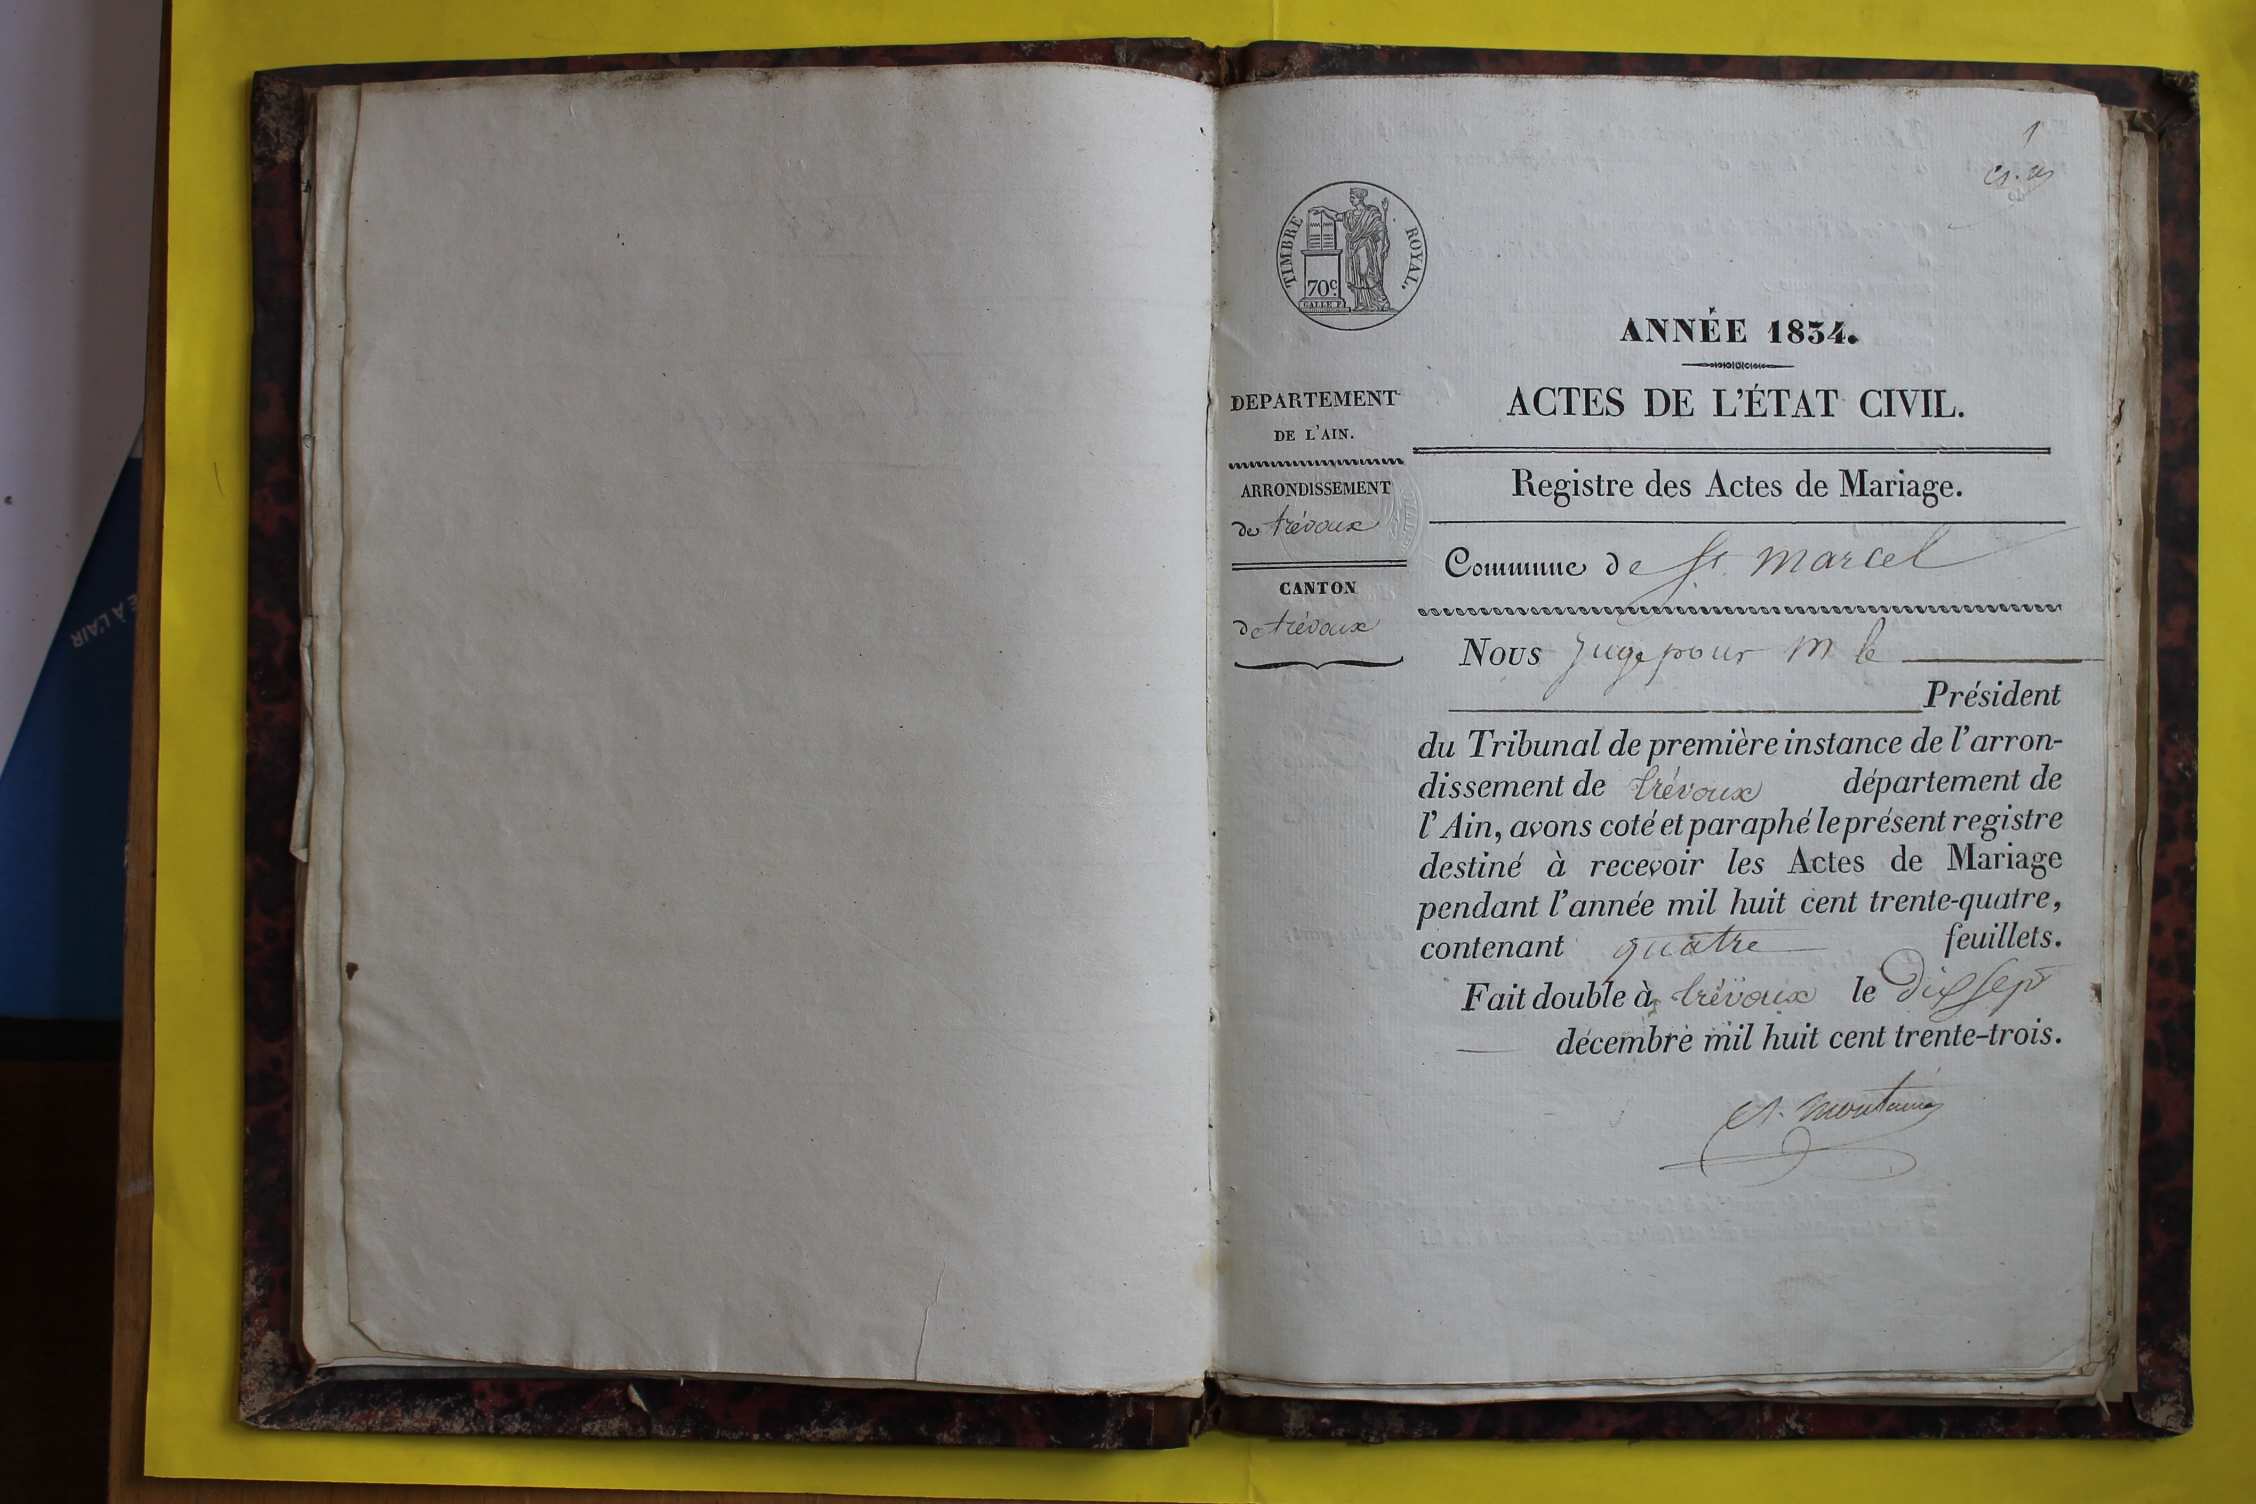 E À L'AIR
1
TIMBRE ROYAL.
70c.
ANNÉE 1834.
ACTES DE L'ÉTAT CIVIL.
DEPARTEMENT
DE L'AIN.
ARRONDISSEMENT
de trévoux
CANTON
de trévoux
Registre des Actes de Mariage.
Commune de St. Marcel
Nous Juge pour M le
Président
du Tribunal de première instance de l'arron-
dissement de trévoux département de
l'Ain, avons coté et paraphé le présent registre
destiné à recevoir les Actes de Mariage
pendant l'année mil huit cent trente-quatre,
contenant quatre feuillets.
Fait double à trévoux le dix sept
décembre mil huit cent trente-trois.